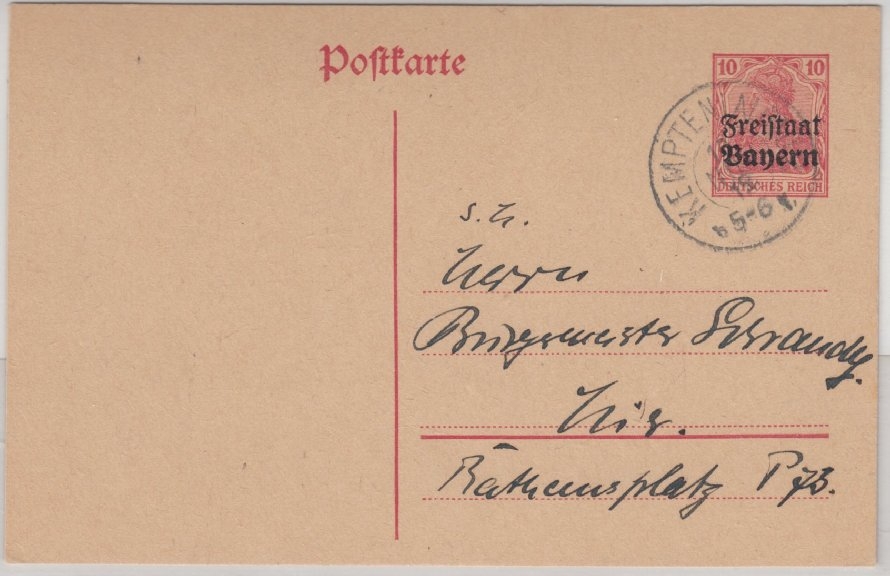 Postkarte
10 10
Freistaat
Bayern
DEUTSCHES REICH
KEMPTEN
5-6
S. H.
Herrn
Bürgermeister
Hier.
Rathausplatz P 73.